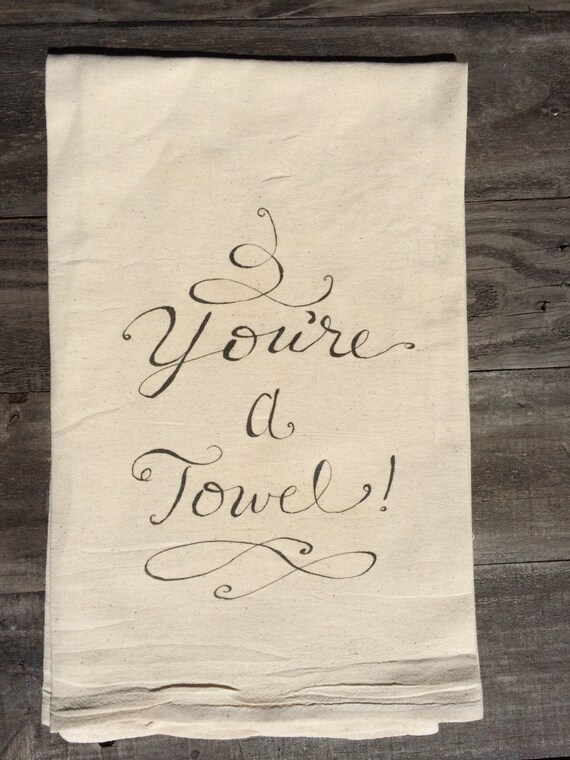 You're
a
Towel!